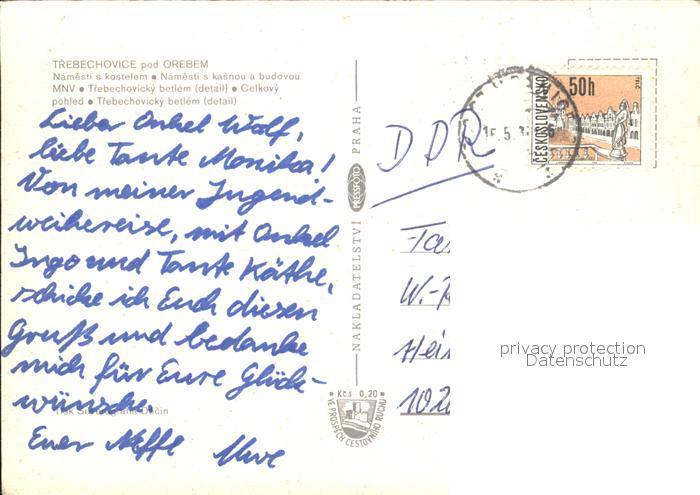 TŘEBECHOVICE pod OREBEM
Náměstí s kostelem ● Náměstí s kašnou a budovou
MNV ● Třebechovický betlém (detail) ● Celkový
pohled ● Třebechovický betlém (detail)
Lieber Onkel Wolf,
liebe Tante Monika!
Von meiner Jugend-
weihereise, mit Onkel
Ingo und Tante Käthe,
schicke ich Euch diesen
Gruß und bedanke
mich für Eure Glück-
wünsche.
Euer Neffe Uwe
NAKLADATELSTVÍ PRESSFOTO PRAHA
Kčs 0,20
VE PROSPĚCH CESTOVNÍHO RUCHU
DDR
ČESKOSLOVENSKO
50h
TELČ
W.-
102
privacy protection
Datenschutz